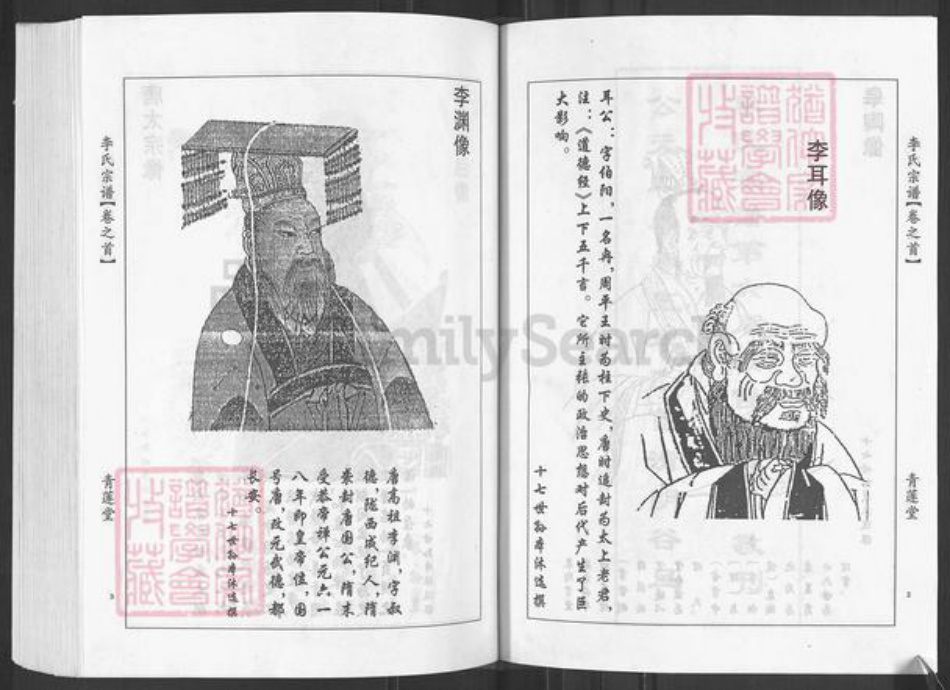 李氏宗谱【卷之首】
青莲堂
2
李耳像
耳公：字伯阳，一名冉，周平王时为柱下史，唐时追封为太上老君，
注：《道德经》上下五千言。它所主张的政治思想对后代产生了巨
大影响。
十七世孙孝沐选撰
李渊像
唐高祖李渊，字叔
德，陇西成纪人，隋
袭封唐国公，隋末
受恭帝禅公元六一
八年即皇帝位，国
号唐，改元武德，都
长安。
十七世孙孝沐选撰
李氏宗谱【卷之首】
青莲堂
3
FamilySearch